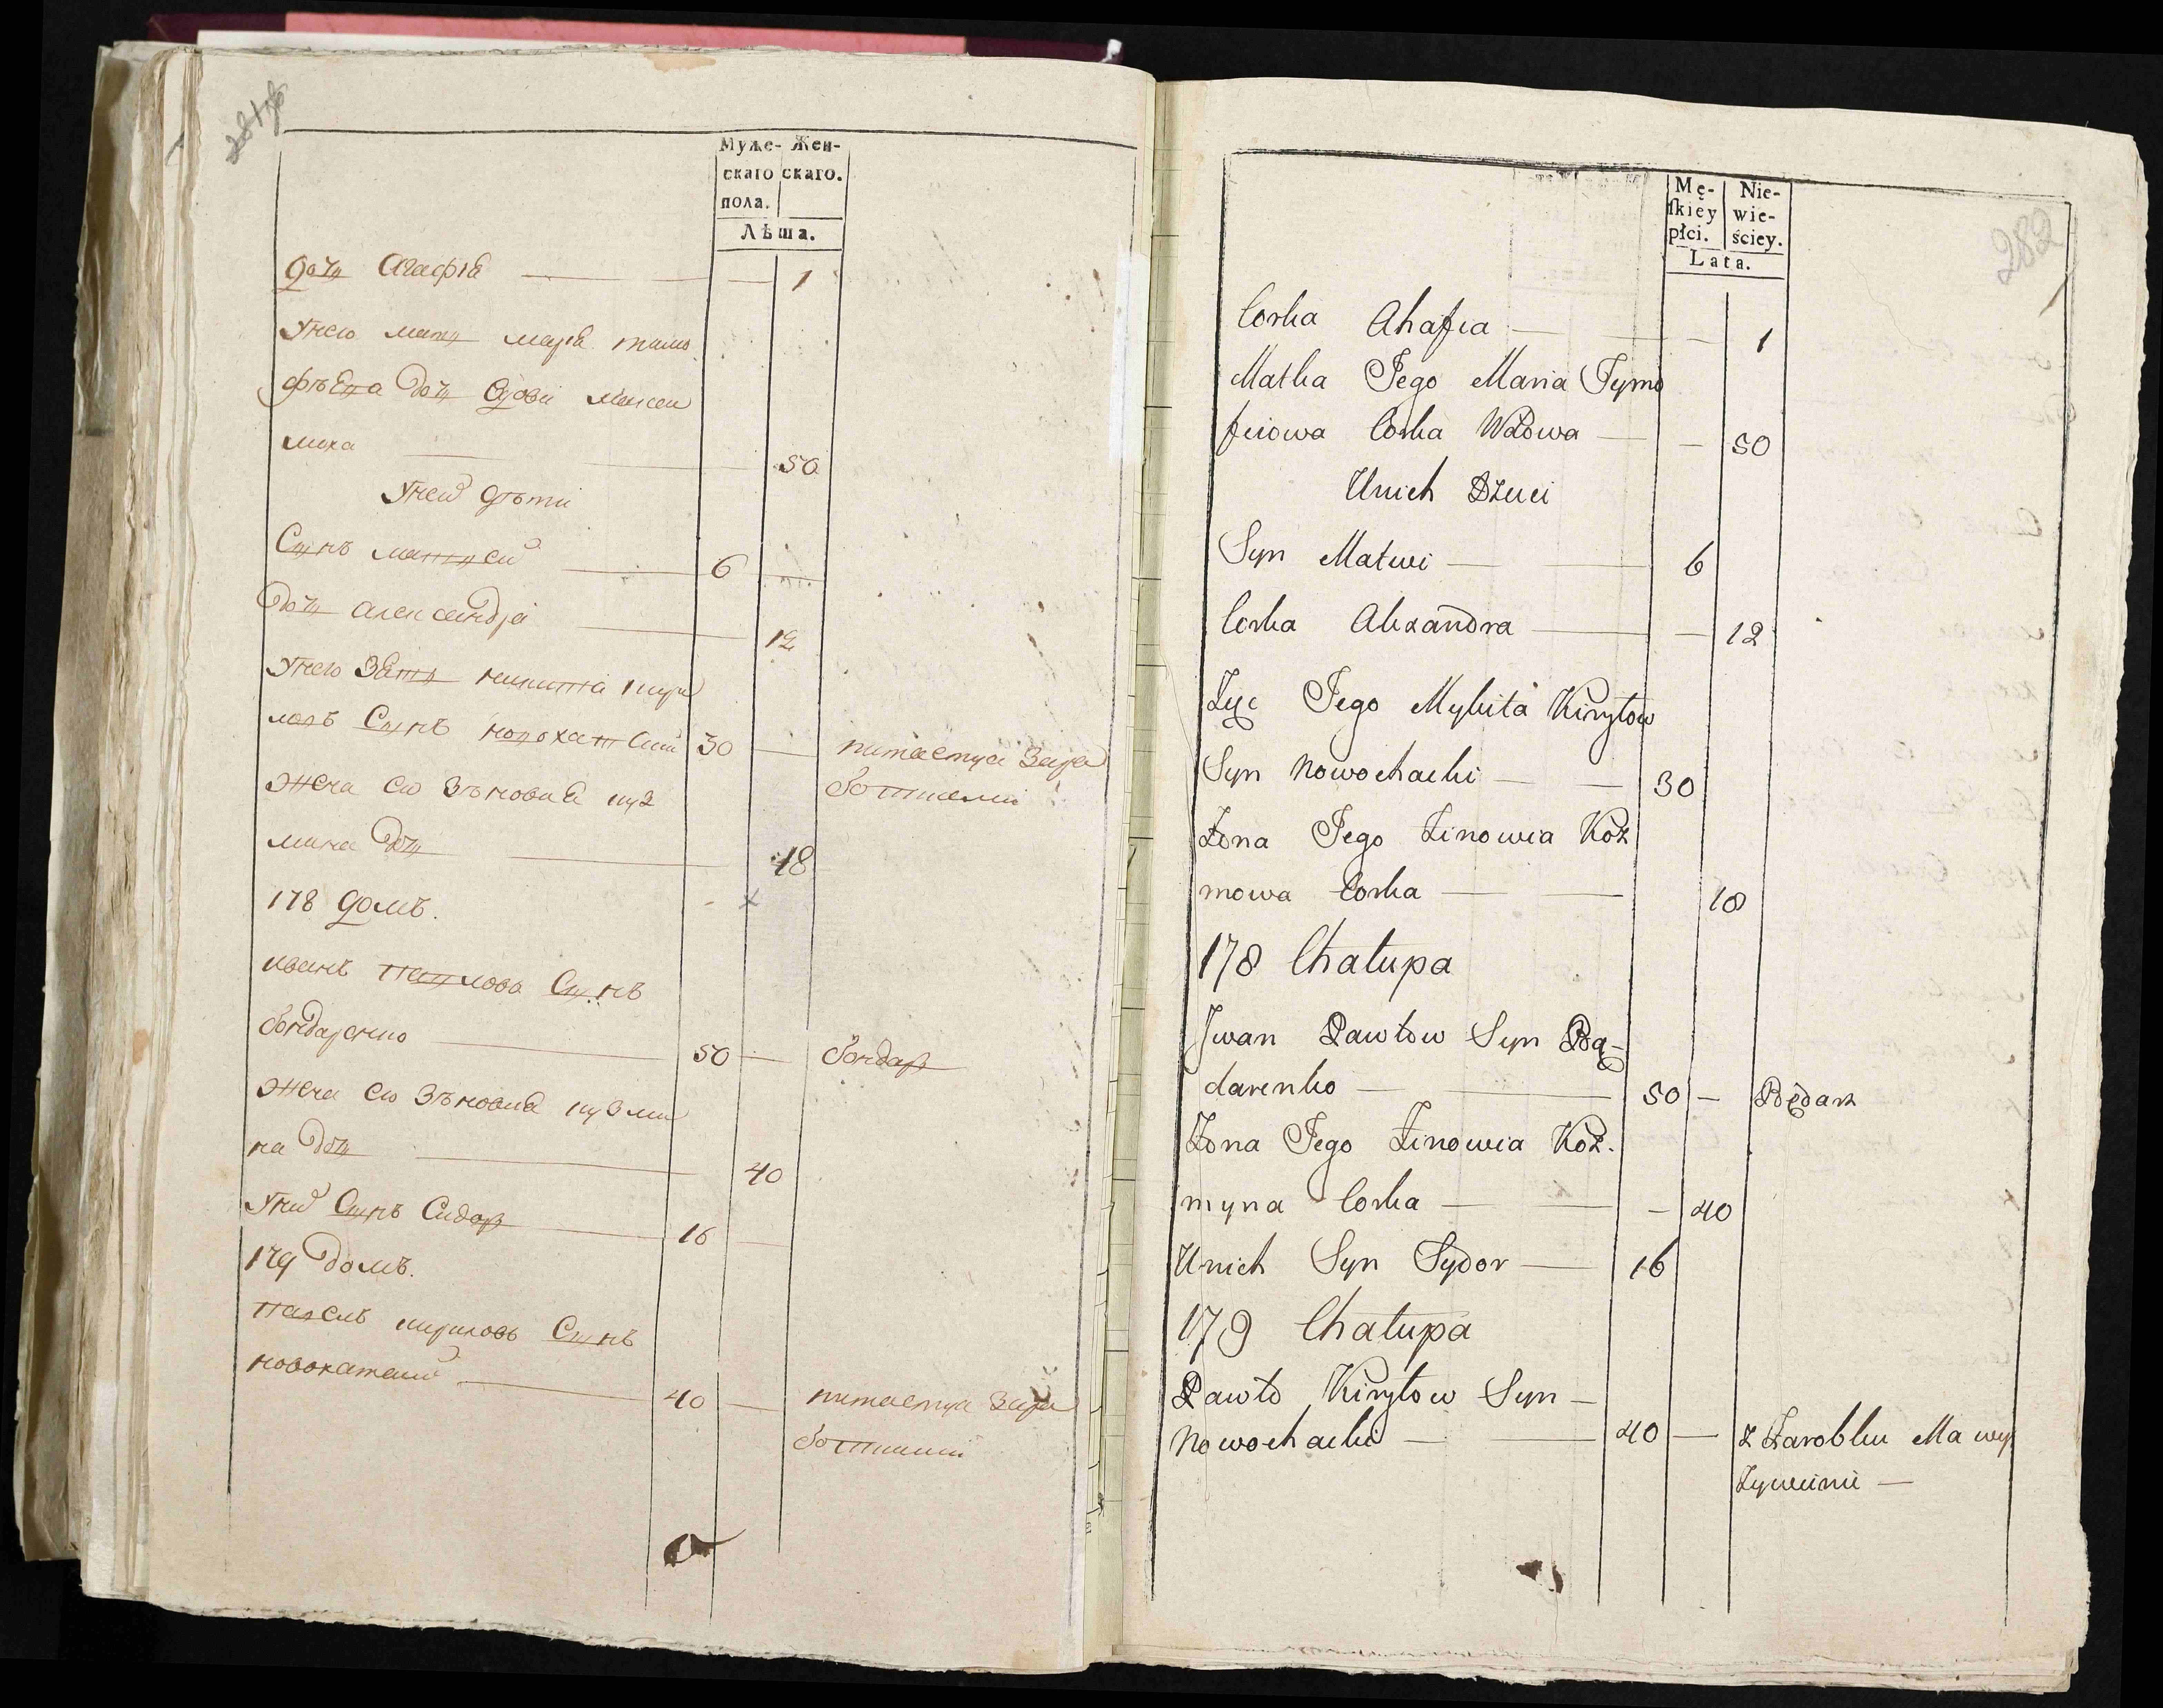 281 об
Муже- Жен-
скаго скаго.
пола.
Лѣта.
дочь Агафія 1
Унего мать марія тимо
фѣева дочь вдова
50
Уней дѣти
Сынъ матвей 6
дочь александра 12
Унего зять никита кири
ловъ Сынъ новохатский 30 питается зара
ботками
жена его зѣновия куз
мина дочь 18
178 домъ.
иванъ павлова Сынъ
бондаренко 50 бондарь
жена его зѣновия кузми
на дочь 40
Уних Сынъ Сидоръ 16
179 домъ.
павелъ кириловъ Сынъ
новохатский 40 питается зара
ботками
282
Mę- Nie-
skiey wie-
płci. ściey.
Lata.
Corka Ahafia 1
Matka Jego Maria Tymo
fieiowa Corka Wdowa 50
Unich Dzieci
Syn Matwi 6
Corka Alexandra 12
Zięc Jego Mykita Kiryłow
Syn Nowochacki 30
Zona Jego Zinowia Koz
mowa Corka 18
178 Chałupa
Jwan Pawłow Syn Bą-
darenko 50 Będarz
Zona Jego Zinowia Koz.
myna Corka 40
Unich Syn Sydor 16
179 Chałupa
Pawło Kiryłow Syn
Nowochacki 40 z Zarobku Ma wy
Zywieniie